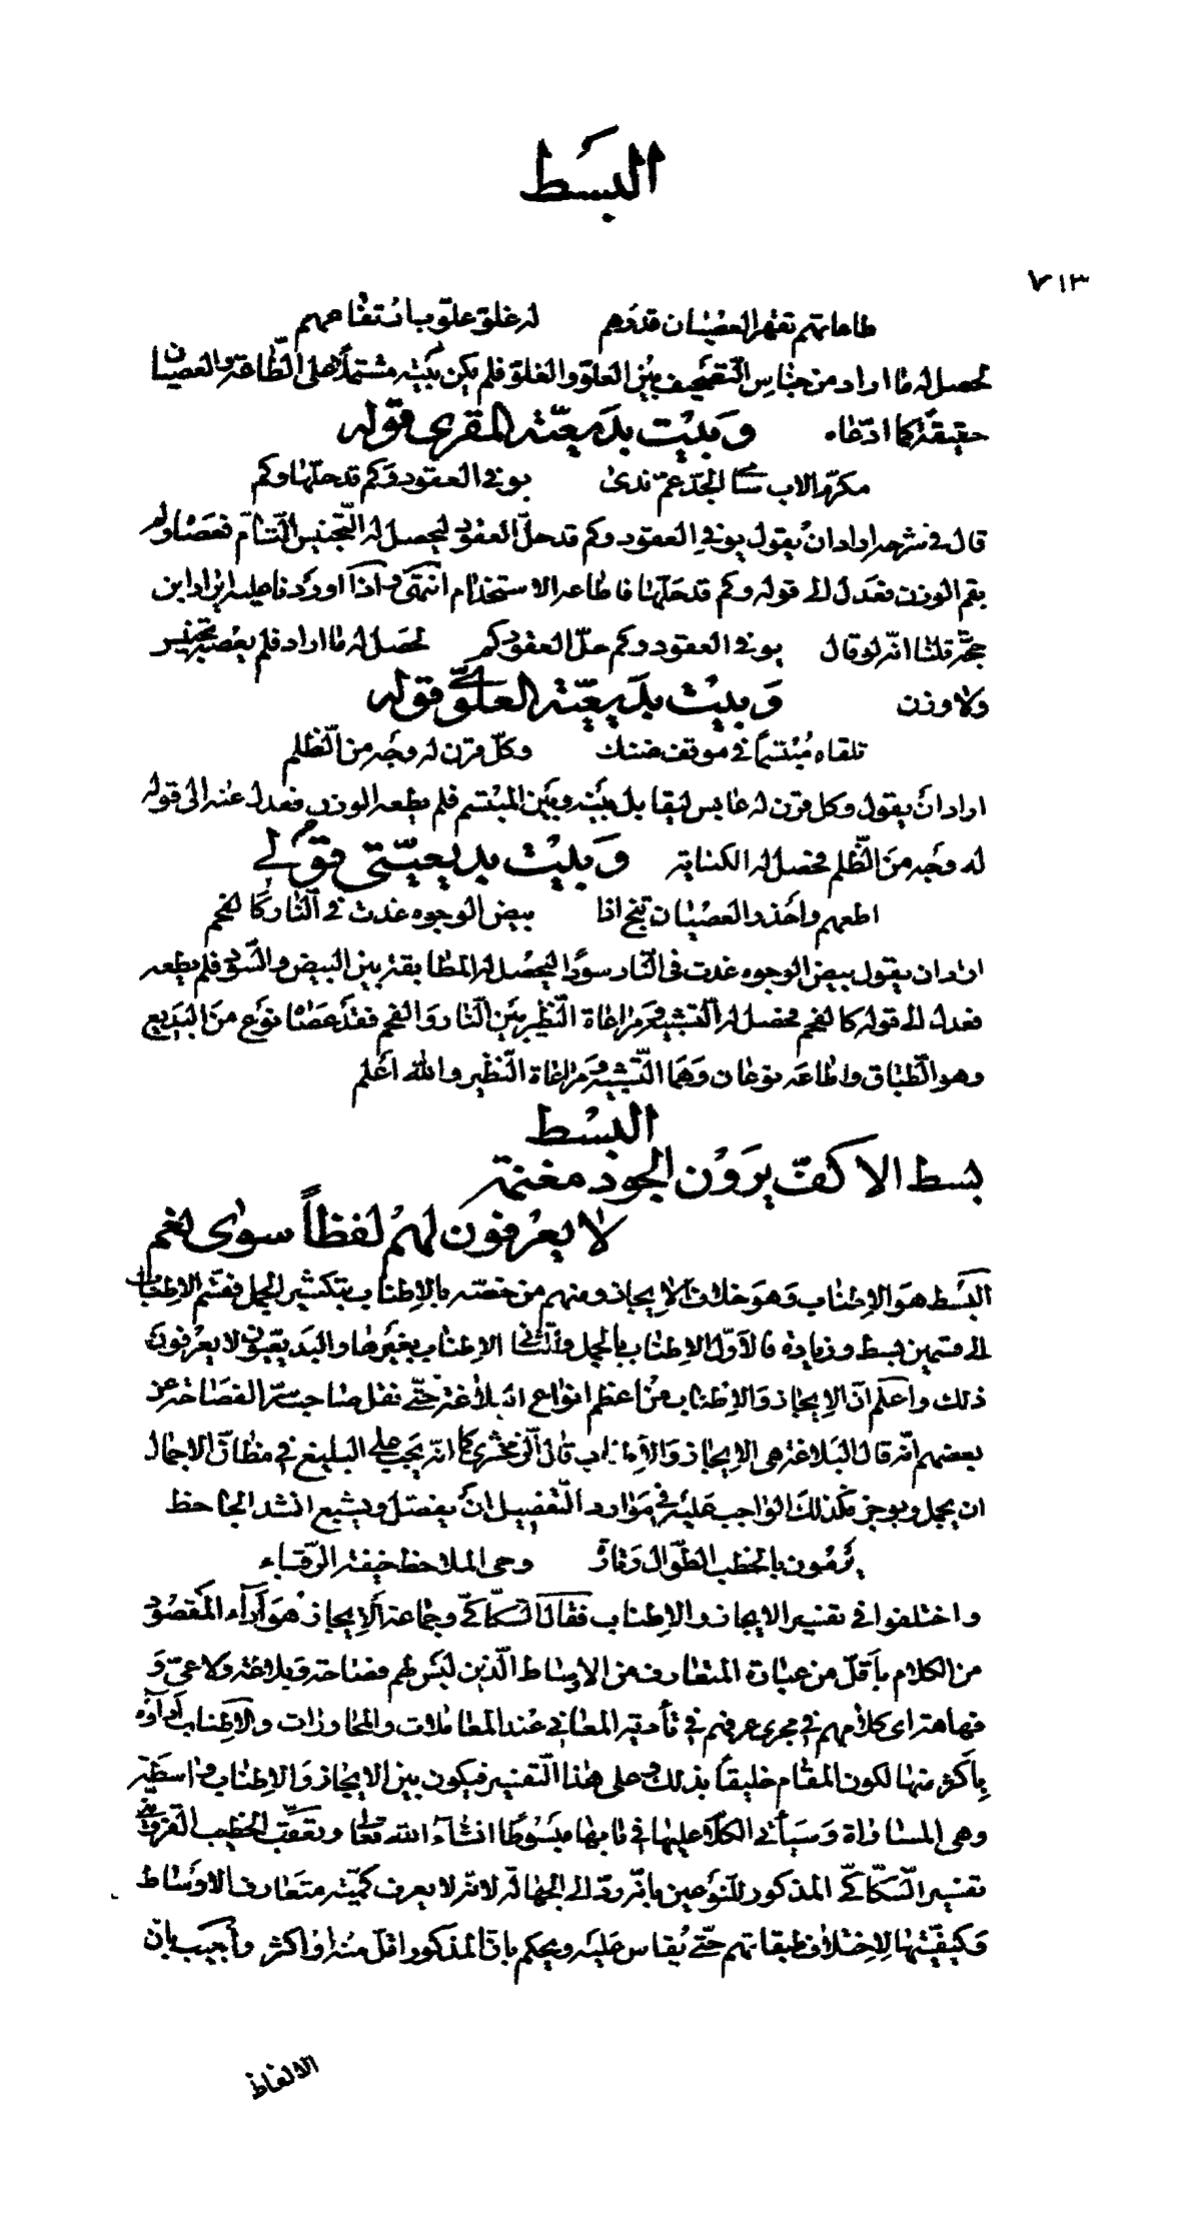 البسط
٧١٣
طاعاتهم تقهر العصيان قدرهم له غلو علو بانتفاحهم
لحصل له ما اراد من جناس التصحيف بين العلو والغلو فلم يكن بيته مشتملا على الطاعة والعصيان
حقيقة كما ادعاه وبيت بديعية المقري قوله
مكرم الاب سامي الجد عم ندى يوفي العقود وكم قد حلها وكم
قال في شرحه اراد ان يقول يوفي العقود وكم قد حل العقود ليحصل له التجنيس التام فعصاه ولم
يقم الوزن فعدل الى قوله وكم قد حلها فاطاعه الاستخدام انتهى واذا اوردنا عليه ايراد ابن
حجة قلنا انه لو قال يوفي العقود وكم حل العقود كم لحصل له ما اراد فلم يعصه تجنيس
ولا وزن وبيت بديعية العلوي قوله
تلقاه مبتسما في موقف ضنك وكل قرن له وجه من الظلم
اراد ان يقول وكل قرن له عابس ليقابل بينه وبين المبتسم فلم يطعه الوزن فعدل عنه الى قوله
له وجه من الظلم فحصل له الكناية وبيت بديعيتي قولي
اطعهم واحذر العصيان تنج اذا بيض الوجوه غدت في النار كالفحم
اراد ان يقول بيض الوجوه غدت في النار سودا ليحصل له المطابقة بين البيض والسود فلم يطعه
فعدل الى قوله كالفحم فحصل له التشبيه ومراعاة النظير بين النار والفحم فقد عصانا نوع من البديع
وهو الطباق واطاعه نوعان وهما التشبيه ومراعاة النظير والله اعلم
البسط
بسط الاكف يرون الجود مغنمة
لا يعرفون لهم لفظا سوى نعم
البسط هو الاطناب وهو خلاف الايجاز ومنهم من خصه بالاطناب بتكثير الجمل فقسم الاطناب
الى قسمين بسط وزيادة فالاول الاطناب بالجمل والثاني الاطناب بغيرها والبديعيون لا يعرفون
ذلك واعلم ان الايجاز والاطناب من اعظم انواع البلاغة حتى نقل صاحب سر الفصاحة عن
بعضهم انه قال البلاغة هي الايجاز والاطناب قال الزمخشري كما انه يجب على البليغ في مظان الاجمال
ان يجمل ويوجز فكذلك الواجب عليه في موارد التفصيل ان يفصل ويشبع انشد الجاحظ
يرمون بالخطب الطوال وتارة وحي الملاحظ خيفة الرقباء
واختلفوا في تفسير الايجاز والاطناب فقال السكاكي وجماعة الايجاز هو اداء المقصود
من الكلام باقل من عبارة المتعارف من الاوساط الذين ليس لهم فصاحة وبلاغة ولا عي و
فهاهة اي كلامهم في مجرى عرفهم في تأدية المعاني عند المعاملات والمحاورات والاطناب اداؤه
باكثر منها لكون المقام خليقا بذلك وعلى هذا التفسير فيكون بين الايجاز والاطناب واسطة
وهي المساواة وسيأتي الكلام عليها في بابها مبسوطا انشاء الله تعالى وتعقب الخطيب القزويني
تفسير السكاكي المذكور للنوعين بانه رد الى الجهالة لانه لا يعرف كمية متعارف الاوساط
وكيفيتها لاختلاف طبقاتهم حتى يقاس عليه ويحكم بان المذكور اقل منه او اكثر واجيب بان
الالفاظ